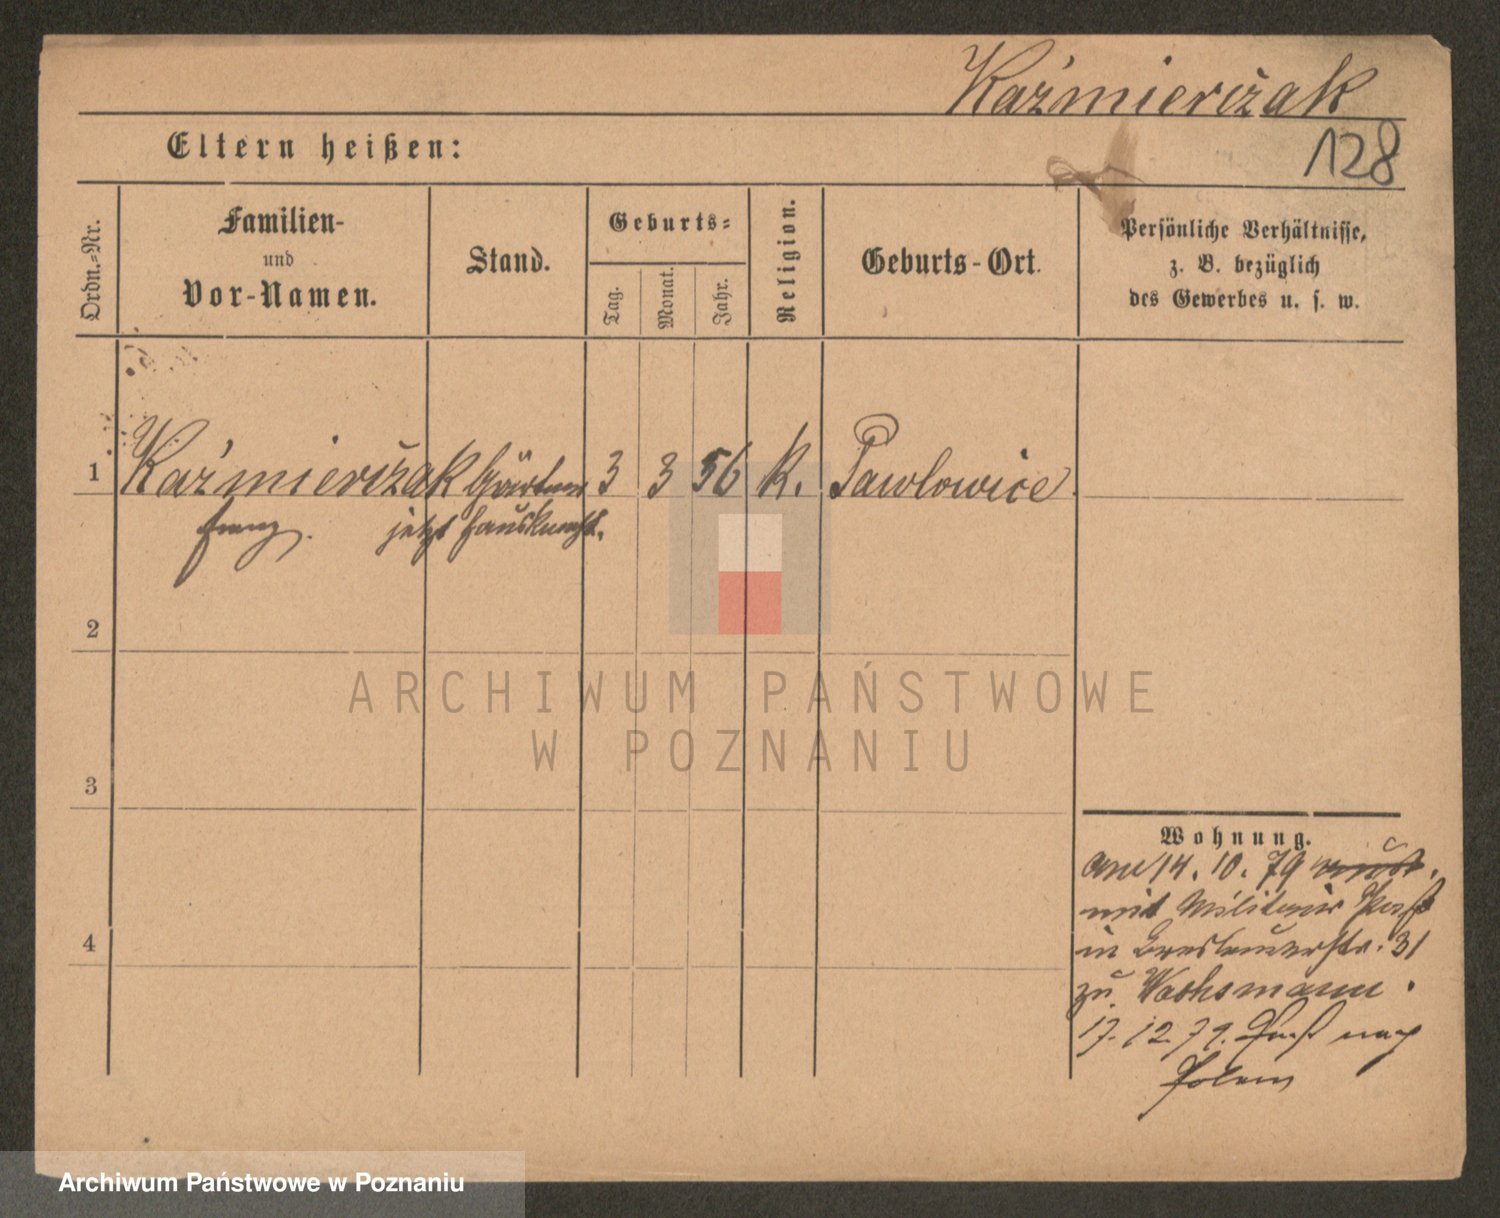 Kaźmierčzak
128
Eltern heißen:
Ordn.-Nr.
Familien-
und
Vor-Namen.
Stand.
Geburts-
Tag.
Monat.
Jahr.
Religion.
Geburts-Ort.
Persönliche Verhältnisse,
z. B. bezüglich
des Gewerbes u. s. w.
1 Kaźmierčzak Gärtner 3 3 56 K. Pawlowice
Franz. jetzt Hausknecht.
2
3
4
Wohnung.
am 14. 10. 79
mit Militair Paß
in Breslauerstr. 31
zu Wachsmann.
17. 12. 79. Paß nach
Polen
ARCHIWUM PAŃSTWOWE
W POZNANIU
Archiwum Państwowe w Poznaniu